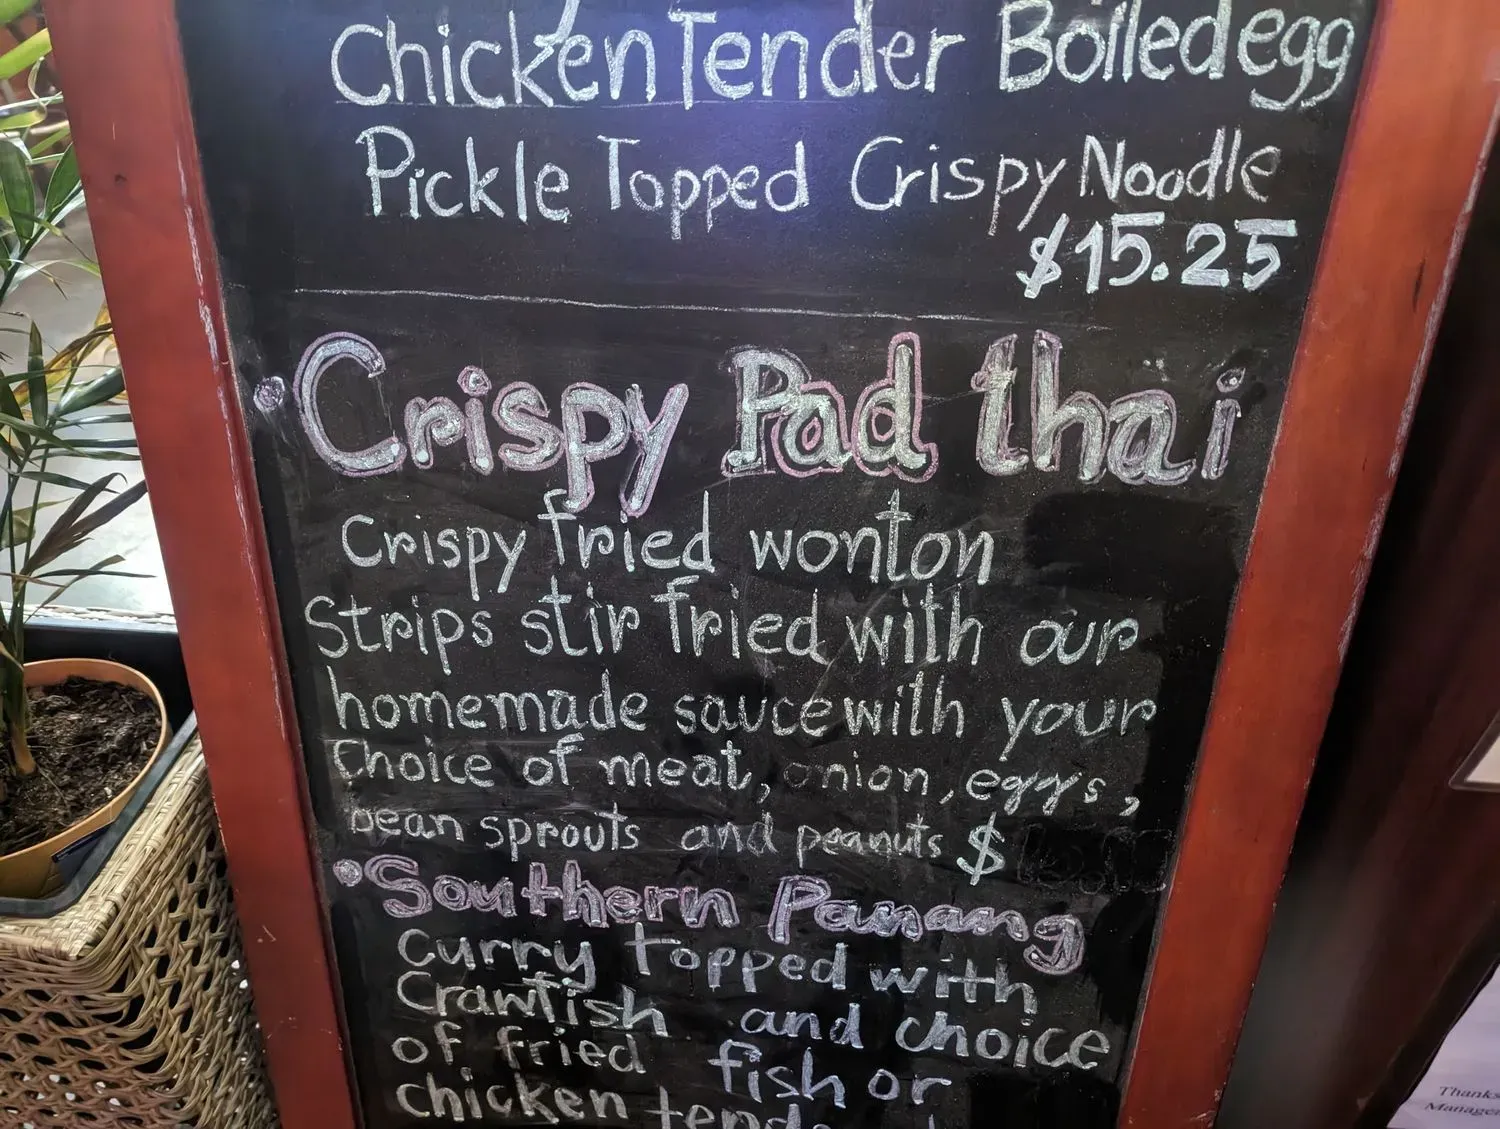 Chicken Tender Boiled egg
Pickle Topped Crispy Noodle
$15.25
Crispy Pad thai
Crispy fried wonton
Strips stir fried with our
homemade sauce with your
Choice of meat, onion, eggs,
bean sprouts and peanuts $
Southern Panang
Curry topped with
Crawfish and choice
of fried fish or
chicken
Thanks
Manager